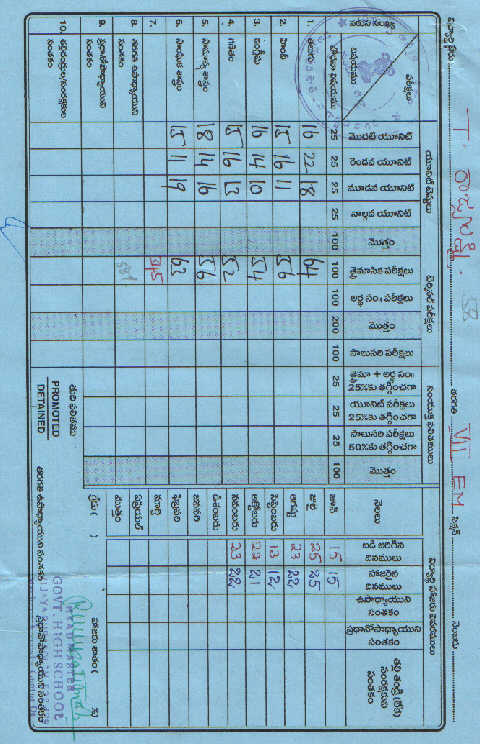 విద్యార్థి పేరు T. తరగతి VII EM సెక్షన్ నెంబరు
యూనిట్ టెస్టులు టెర్మినల్ పరీక్షలు సంయుక్త ఫలితములు
వరుస సంఖ్య పరీక్షలు విషయము
మొదటి యూనిట్ 25
రెండవ యూనిట్ 25
మూడవ యూనిట్ 25
నాల్గవ యూనిట్ 25
మొత్తం 100
త్రైమాసిక పరీక్షలు 100
అర్థ సం॥ పరీక్షలు 100
మొత్తం 200
సాలుసరి పరీక్షలు 100
త్రైమా + అర్థ సం॥ 25%కు తగ్గించగా 25
యూనిట్ పరీక్షలు 25%కు తగ్గించగా 25
సాలుసరి పరీక్షలు 50%కు తగ్గించగా
మొత్తం 100
1. తెలుగు 16 22 18 64
2. హిందీ 15 16 11 56
3. ఇంగ్లీషు 16 14 10 54
4. గణితం 15 16 13 52
5. సామాన్య శాస్త్రం 18 14 16 56
6. సాంఘిక శాస్త్రం 15 11 19 63
7. 345
8. తరగతి ఉపాధ్యాయుని సంతకం
9. ప్రధానోపాధ్యాయుని సంతకం
10. తల్లిదండ్రుల/సంరక్షకుల సంతకం
తుది ఫలితము
PROMOTED
DETAINED
విద్యార్థి హాజరు వివరములు
నెలలు
బడి జరిగిన దినములు
హాజరైన దినములు
ఉపాధ్యాయుని సంతకం
ప్రధానోపాధ్యాయుని సంతకం
తల్లి తండ్రి (లేక) సంరక్షకుని సంతకం
జూన్ 15 15
జూలై 25 25
ఆగష్టు 23 22
సెప్టెంబరు 13 12
అక్టోబరు 23 21
నవంబరు 23 22
డిశంబరు
జనవరి
ఫిబ్రవరి
మార్చి
ఏప్రియల్
మొత్తం
గ్రేడు ( ) హాజరు శాతం ( %)
తరగతి ఉపాధ్యాయుని సంతకం ప్రధానోపాధ్యాయుని సంతకం
GOVT HIGH SCHOOL